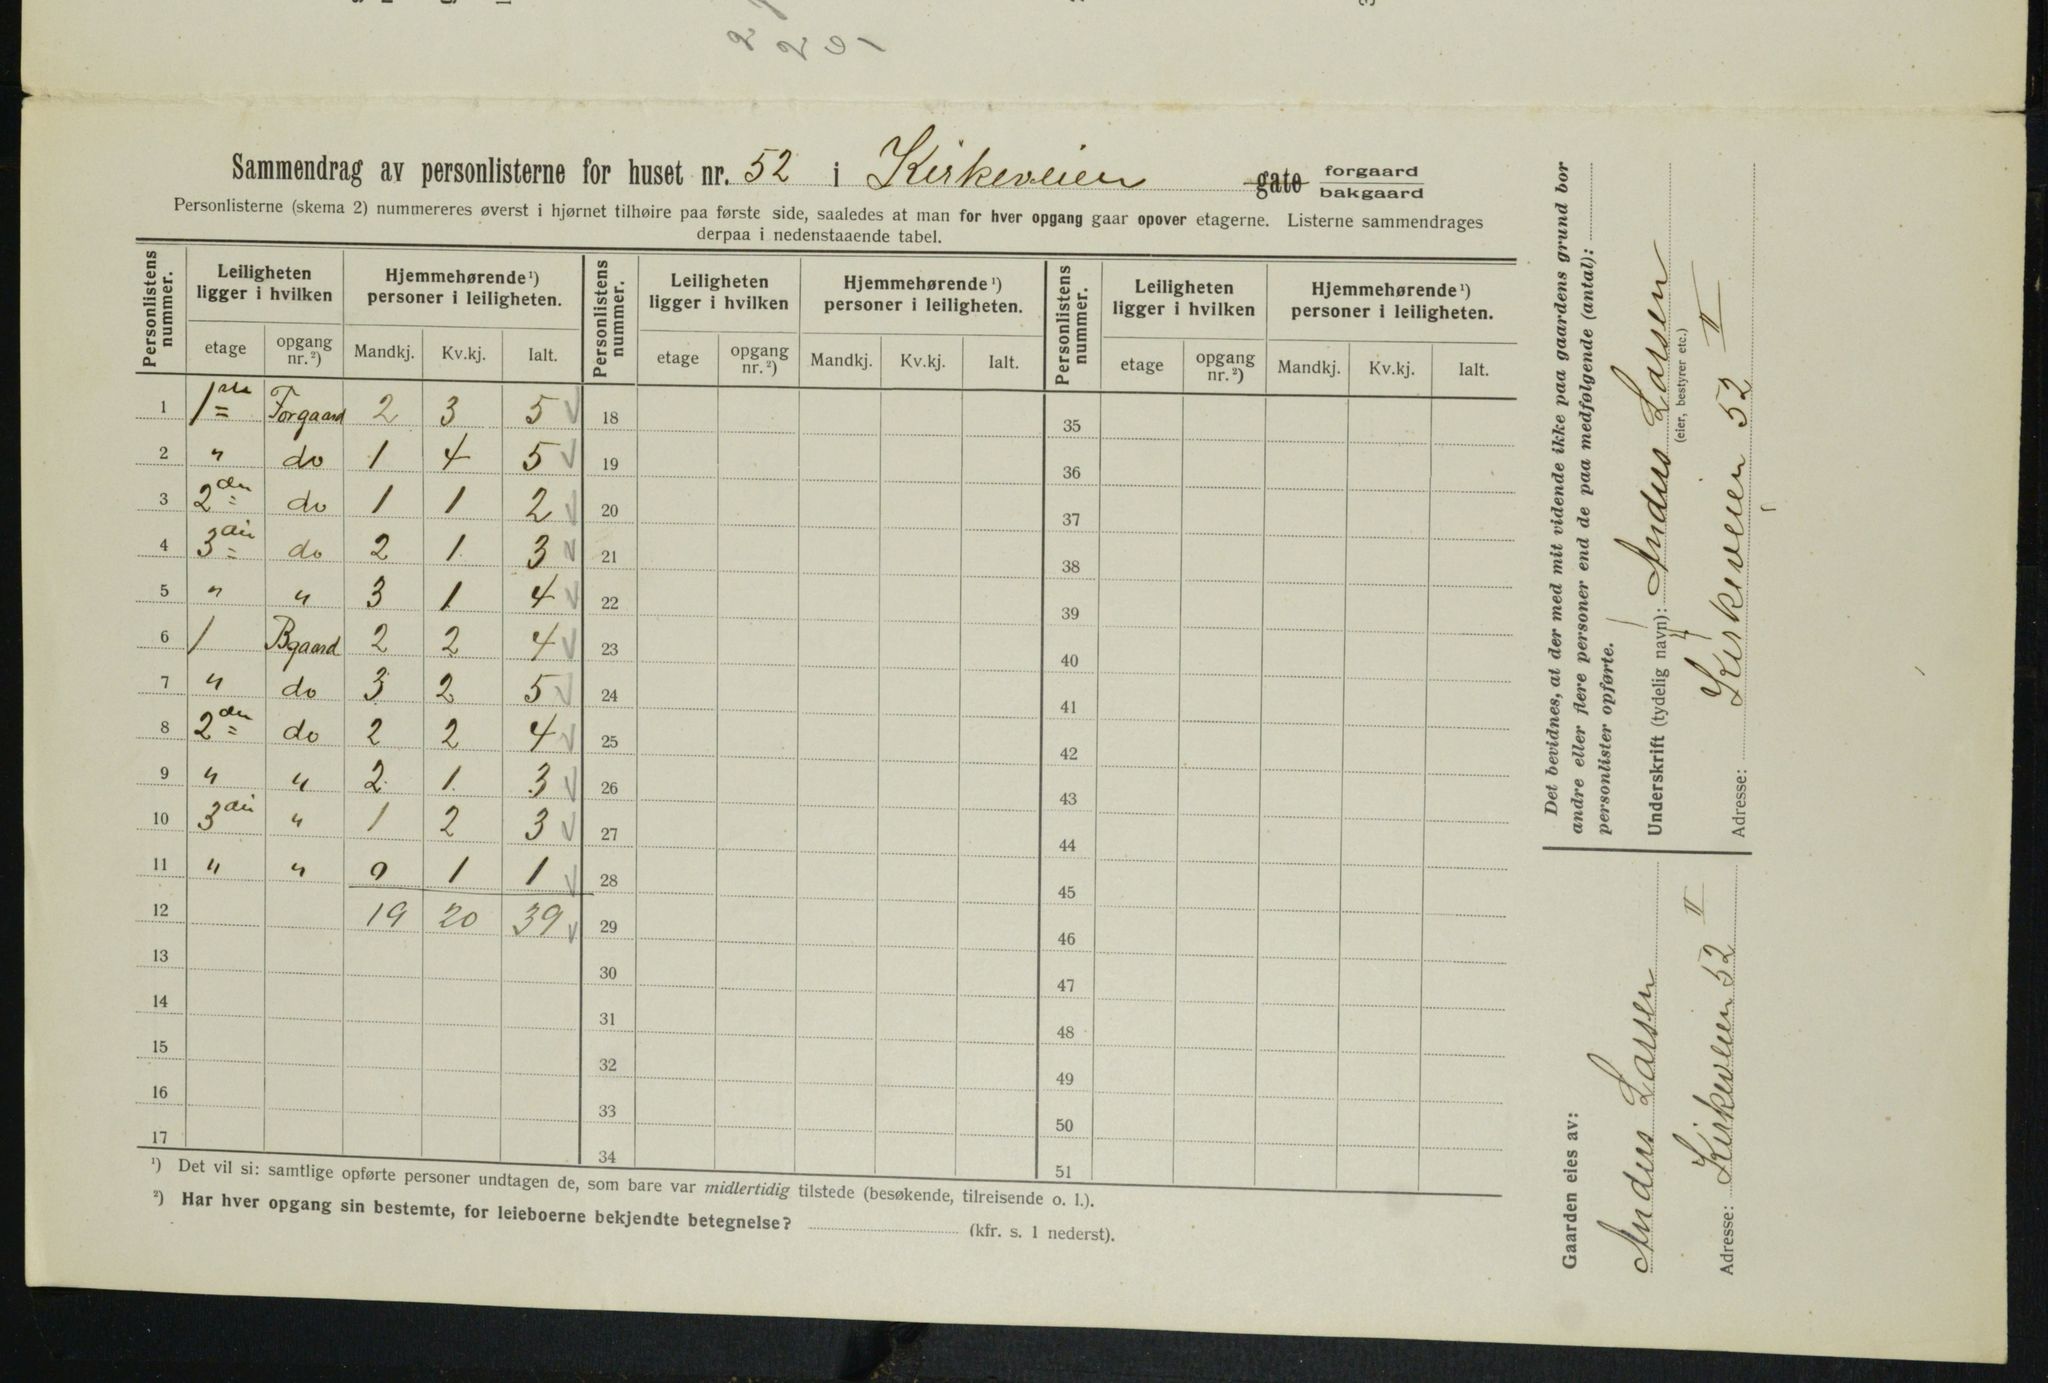 Sammendrag av personlisterne for huset nr. 52 i Kirkeveien gate forgaard bakgaard
Personlisterne (skema 2) nummereres øverst i hjørnet tilhøire paa første side, saaledes at man for hver opgang gaar opover etagerne. Listerne sammendrages
derpaa i nedenstaaende tabel.
Personlistens nummer. Leiligheten ligger i hvilken Hjemmehørende¹) personer i leiligheten. Personlistens nummer. Leiligheten ligger i hvilken Hjemmehørende¹) personer i leiligheten. Personlistens nummer. Leiligheten ligger i hvilken Hjemmehørende¹) personer i leiligheten.
etage opgang nr.²) Mandkj. Kv.kj. Ialt. etage opgang nr.²) Mandkj. Kv.kj. Ialt. etage opgang nr.²) Mandkj. Kv.kj. Ialt.
1 1ste Forgaard 2 3 5 18 35
2 " do 1 4 5 19 36
3 2den do 1 1 2 20 37
4 3die do 2 1 3 21 38
5 " " 3 1 4 22 39
6 1 Bgaard 2 2 4 23 40
7 " do 3 2 5 24 41
8 2den do 2 2 4 25 42
9 " " 2 1 3 26 43
10 3die " 1 2 3 27 44
11 " " 0 1 1 28 45
12 19 20 39 29 46
13 30 47
14 31 48
15 32 49
16 33 50
17 34 51
¹) Det vil si: samtlige opførte personer undtagen de, som bare var midlertidig tilstede (besøkende, tilreisende o. l.).
²) Har hver opgang sin bestemte, for leieboerne bekjendte betegnelse? (kfr. s. 1 nederst).
Det bevidnes, at der med mit vidende ikke paa gaardens grund bor
andre eller flere personer end de paa medfølgende (antal):
personlister opførte.
Underskrift (tydelig navn): Anders Larsen
(eier, bestyrer etc.)
Adresse: Kirkeveien 52 II
Gaarden eies av:
Anders Larsen
Adresse: Kirkeveien 52 II